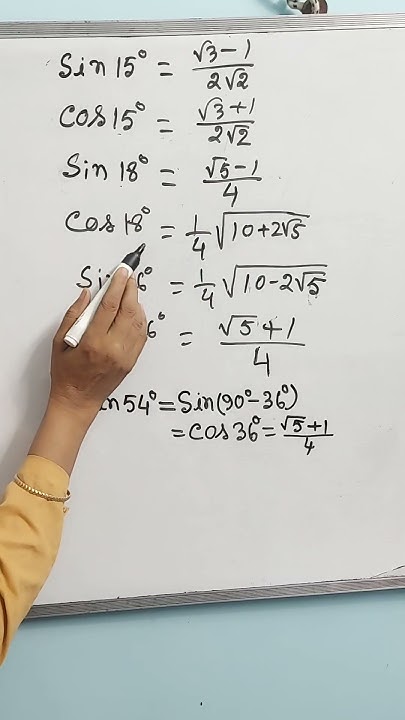 Sin 15° = √3 - 1 / 2√2
Cos 15° = √3 + 1 / 2√2
Sin 18° = √5 - 1 / 4
Cos 18° = 1/4 √10 + 2√5
Si 6° = 1/4 √10 - 2√5
6° = √5 + 1 / 4
n 54° = Sin(90° - 36°)
= Cos 36° = √5 + 1 / 4